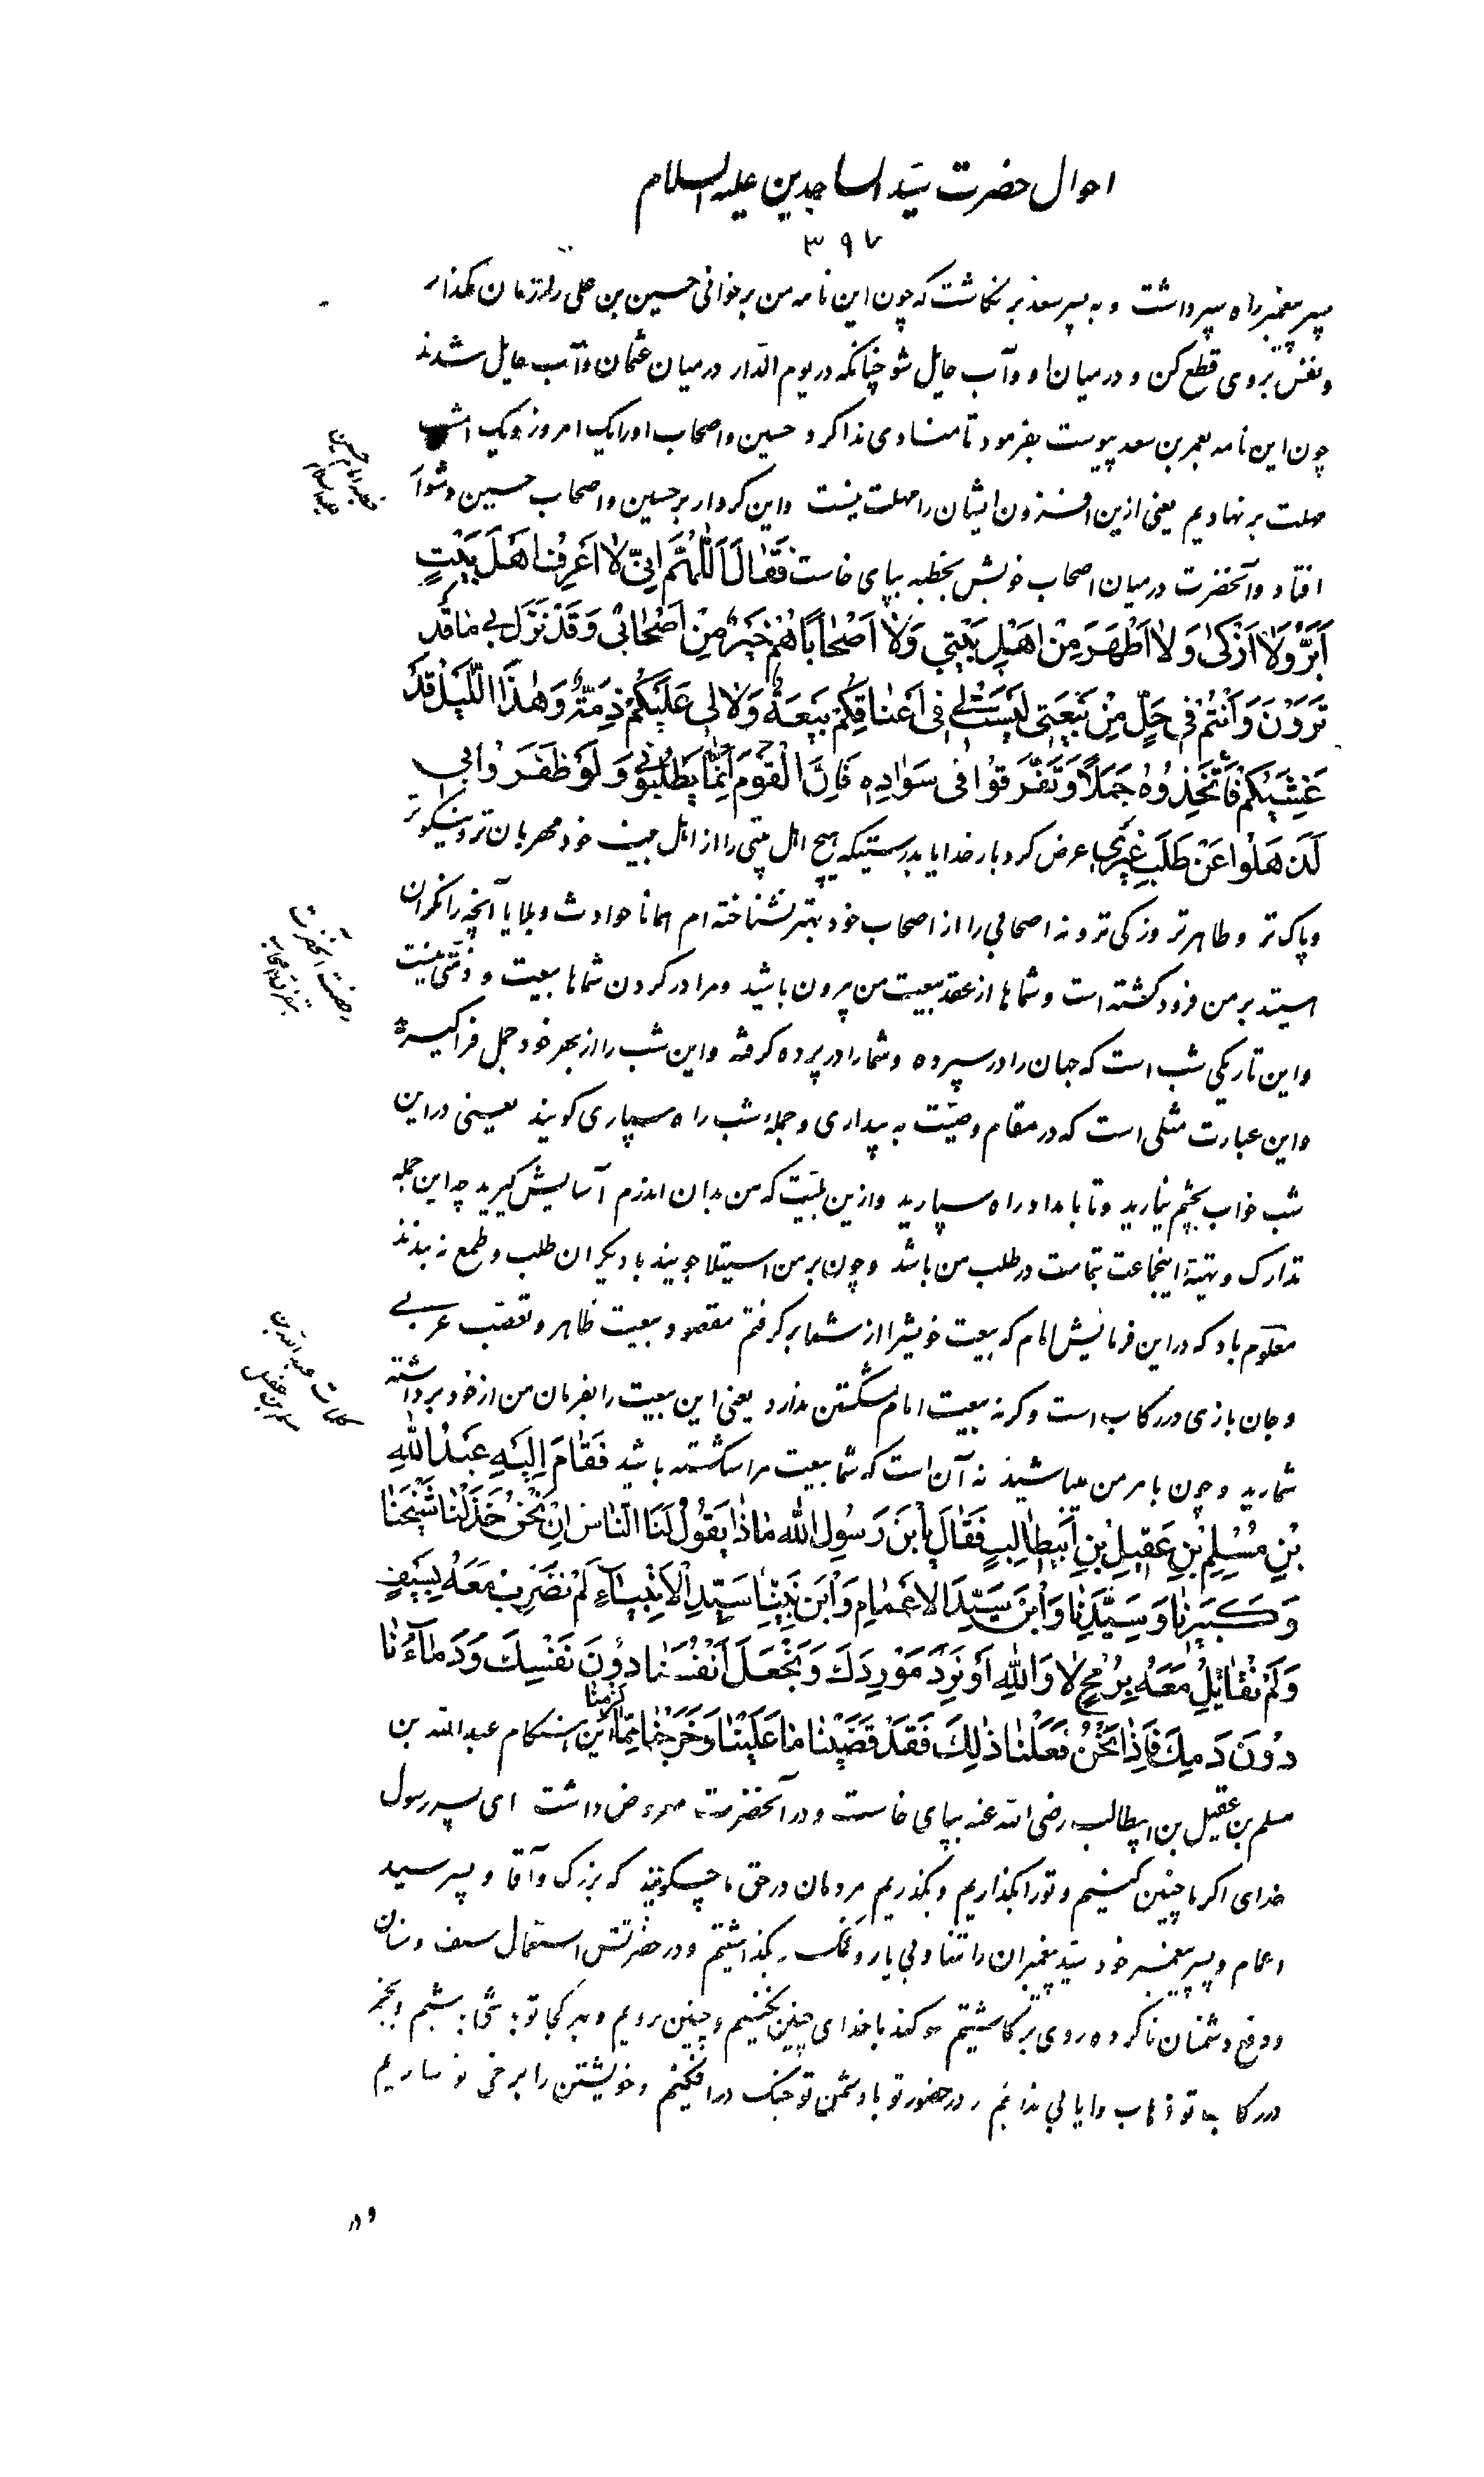 احوال حضرت سیّد الساجدین علیه السلام
۳۹۷
پسر پیغمبر راه سپر داشت و به پسر سعد بر نگاشت که چون این نامه من برخوانی حسین بن علی را از زمان مگذار
و نفس بروی قطع کن و در میان او و آب حایل شو چنانکه در یوم الدّار در میان عثمان و آب حایل شدند
چون این نامه بعمر بن سعد پیوست بفرمود تا منادی ندا کرد حسین و اصحاب او را یک امروز و یک امشب
مهلت بر نهادیم یعنی ازین افزون ایشان را مهلت نیست و این کردار بر حسین و اصحاب حسین دشوار
خطبه امام حسین علیه السلام
افتاد و آنحضرت در میان اصحاب خویش بخطبه بپای خاست فَقٰالَ اَللّٰهُمَّ اِنّی لاٰ اَعْرِفُ اَهْلَ بَیْتٍ
اَبَرَّ وَلاٰ اَزْکیٰ وَلاٰ اَطْهَرَ مِنْ اَهْلِ بَیْتی وَلاٰ اَصْحٰابًا هُمْ خَیْرٌ مِنْ اَصْحٰابی وَقَدْ نَزَلَ بی مٰا قَدْ
تَرَوْنَ وَاَنْتُمْ فی حِلٍّ مِنْ بَیْعَتی لَیْسَتْ لی فی اَعْنٰاقِکُمْ بَیْعَةٌ وَلاٰ لی عَلَیْکُمْ ذِمَّةٌ وَهٰذَا اللَّیْلُ قَدْ
غَشِیَکُمْ فَاتَّخِذُوهُ جَمَلاً وَتَفَرَّقُوا فی سَوٰادِهِ فَاِنَّ الْقَوْمَ اِنَّمٰا یَطْلُبُونی وَلَوْ ظَفَرُوا بی
لَذَهَلُوا عَنْ طَلَبِ غَیْری عرض کرد بار خدایا بدرستیکه هیچ اهل بیتی را از اهل بیت خود مهربان تر و نیکوتر
و پاک تر و طاهر تر و زکی تر و نه اصحابی را از اصحاب خود بهتر نشناخته ام همانا حوادث و بلایا آنچه را نگران
رخصت آنحضرت بتفرقه اصحاب
هستید بر من فرود گشته است و شما ها از عقد بیعت من بیرون باشید و مرا در گردن شماها بیعت و ذمّتی نیست
و این تاریکی شب است که جهان را در سپرده و شما را در پرده گرفته و این شب را از بهر خود جمل فرا گیرید
و این عبارت مثلی است که در مقام وصیّت به بیداری و جملۀ شب راه سپاری گویند یعنی در این
شب خواب بچشم نیارید و تا بامداد راه سپارید و ازین بلیّت که من بدان اندرم آسایش گیرید چه این جمله
تدارک و تهیّۀ اینجماعت بتمامت در طلب من باشد و چون بر من استیلا جویند با دیگران طلب و طمع نه بندند
معلوم باد که در این فرمایش امام که بیعت خویش را از شما بر گرفتم مقصود بیعت ظاهر و تعصّب عربی
و جان بازی در رکاب است وگرنه بیعت امام شکستن ندارد یعنی این بیعت را بفرمان من از خود برداشته
کلمات عبد الله بن مسلم بن عقیل
شمارید و چون بامر من میباشید نه آن است که شما بیعت مرا شکسته باشید فَقٰامَ اِلَیْهِ عَبْدُاللهِ
بْنِ مُسْلِمِ بْنِ عَقیلِ بْنِ اَبیطٰالِبٍ فَقٰالَ یَابْنَ رَسُولِ اللهِ مٰاذٰا یَقُولُ لَنَا النّٰاسُ اِنْ نَحْنُ خَذَلْنٰا شَیْخَنٰا
وَکَبیرَنٰا وَسَیِّدَنٰا وَابْنَ سَیِّدِ الاَعْمٰامِ وَابْنَ نَبِیِّنٰا سَیِّدِ الاَنْبِیٰآءِ لَمْ نَضْرِبْ مَعَهُ بِسَیْفٍ
وَلَمْ نُقٰاتِلْ مَعَهُ بِرُمْحٍ لاٰ وَاللهِ اَوْ نَرِدَ مَوْرِدَکَ وَنَجْعَلَ اَنْفُسَنٰا دُونَ نَفْسِکَ وَدِمٰآءَنٰا
دُونَ دَمِکَ فَاِذٰا نَحْنُ فَعَلْنٰا ذٰلِکَ فَقَدْ قَضَیْنٰا مٰا عَلَیْنٰا وَخَرَجْنٰا مِمّٰا لَزِمَنٰا این هنگام عبدالله بن
مسلم بن عقیل بن ابیطالب رضی الله عنه بپای خاست و در آنحضرت معروض داشت ای پسر رسول
خدای اگر ما چنین کنیم و تو را بگذاریم و بگذریم مردمان در حق ما چگویند که بزرگ و آقا و پسر سید
اعمام و پسر پیغمبر خود سیّد پیغمبران را تنها و بی یار و بگذاشتیم و در حضرتش استعمال سیف و سنان
و دفع دشمنان ناکرده روی بر گاشتیم سوگند با خدای چنین نکنیم و چنین نرویم و بهر کجا تو باشی باشیم و بجز
در رکاب تو ذهاب و ایابی ندانیم در حضور تو با دشمن تو جنگ در افکنیم و خویشتن را برخی تو سازیم
و در